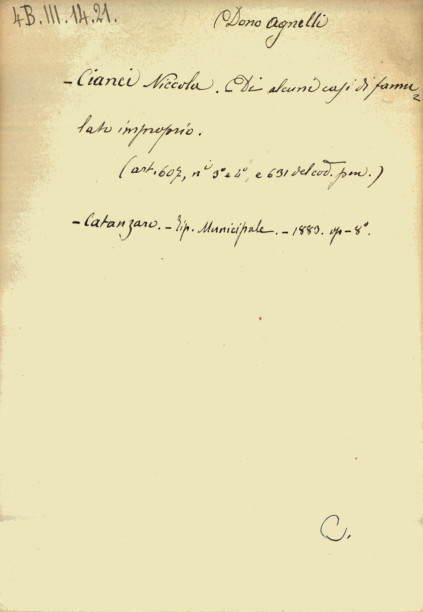 4B.III.14.21.
Dono Agnelli
- Cianci Niccola. Di alcuni casi di famu=
lato improprio.
(art. 607, nⁱ 3º e 4º, e 631 del cod. pen.)
- Catanzaro. - Tip. Municipale. - 1883. op - 8º.
C.